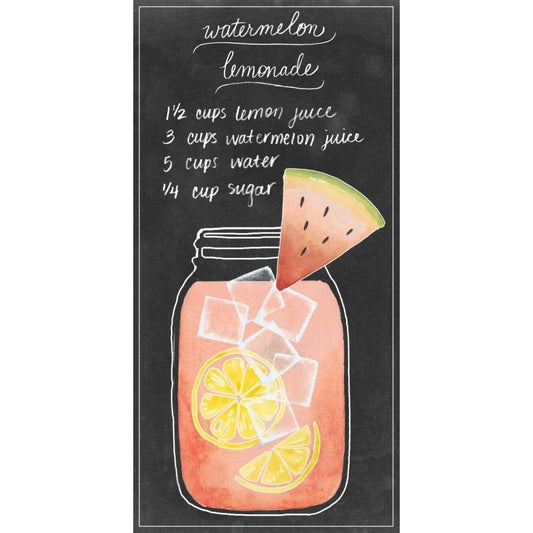 watermelon
lemonade
1½ cups lemon juice
3 cups watermelon juice
5 cups water
¼ cup sugar